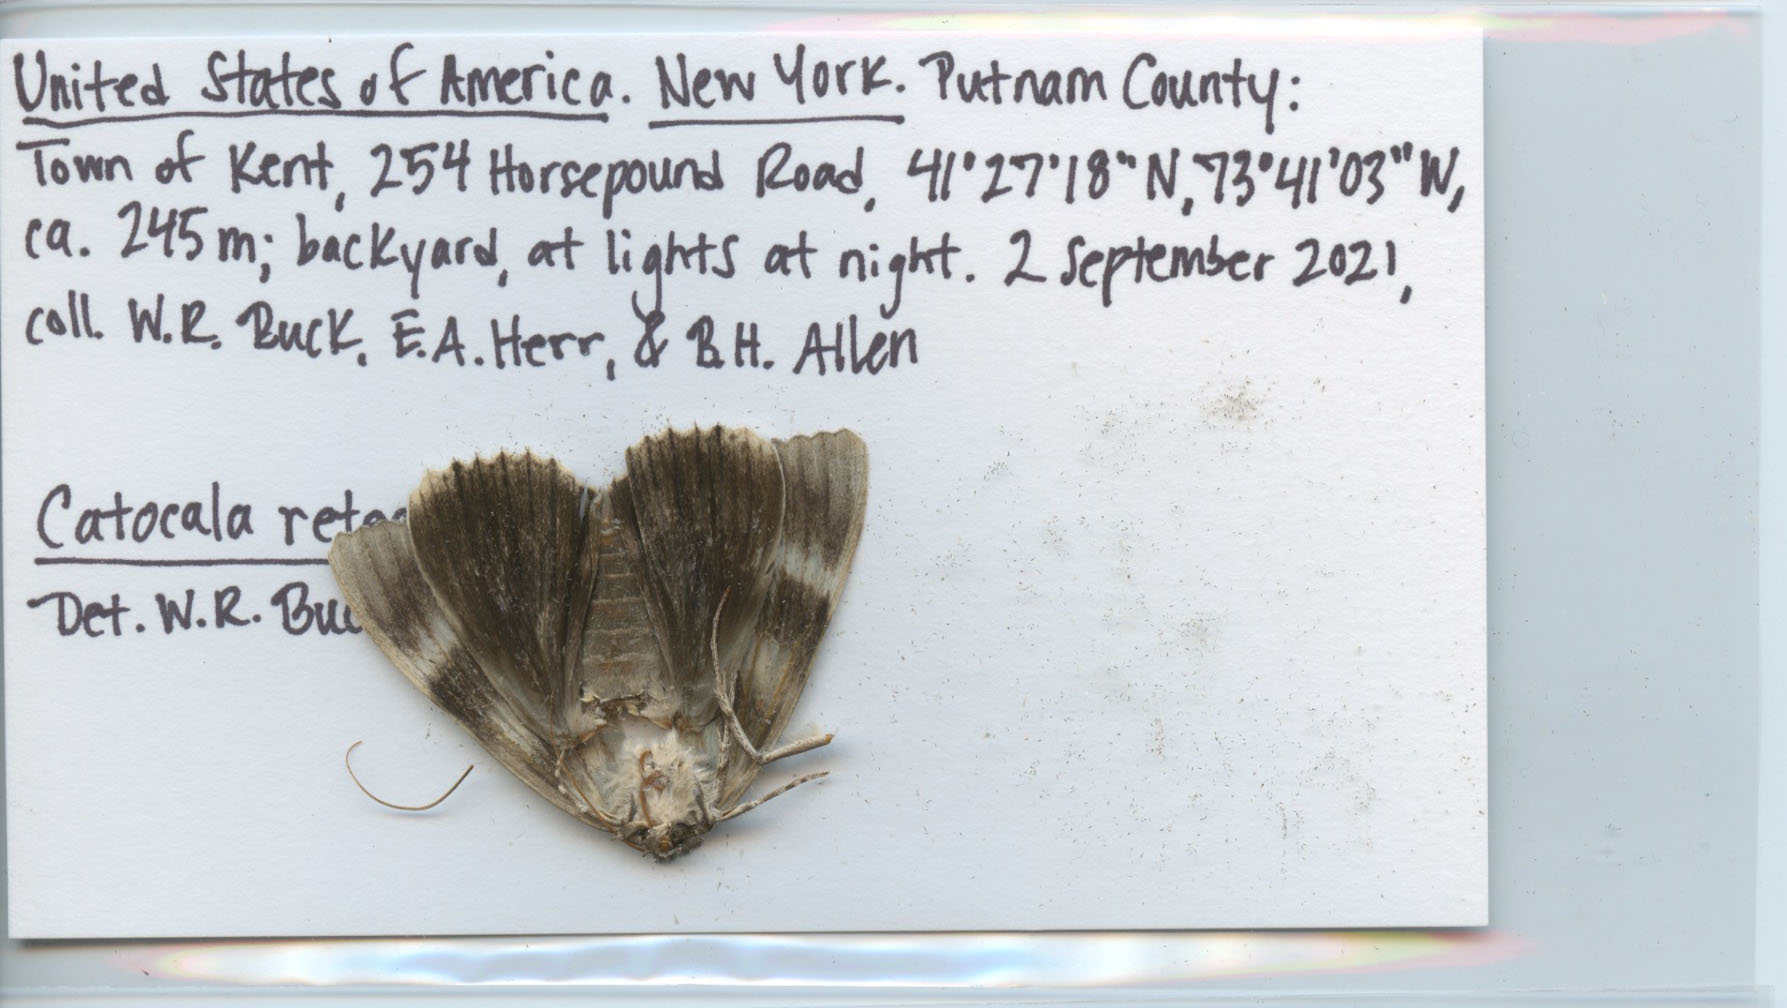 United States of America. New York. Putnam County:
Town of Kent, 254 Horsepound Road, 41°27'18"N, 73°41'03"W,
ca. 245 m; backyard, at lights at night. 2 September 2021,
coll. W.R. Buck, E.A. Herr, & B.H. Allen
Catocala
Det. W.R.